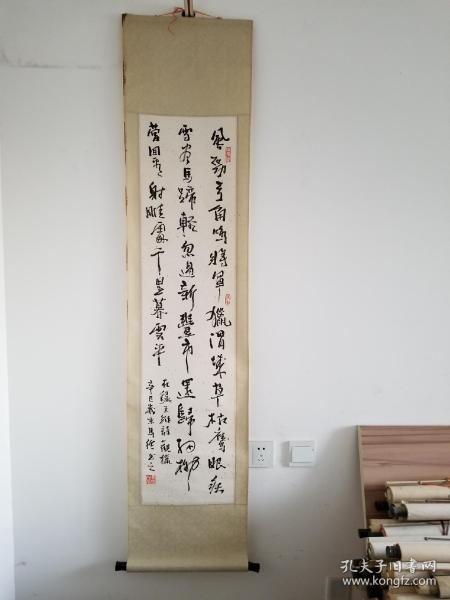 風勁弓角鳴將軍獵渭城草枯鷹眼疾
雪尽馬蹄輕忽過新豐市還歸細柳
營回看射雕處千里暮雲平
右錄王維詩觀獵
辛巳歲末馬書之
孔夫子旧书网
www.kongfz.com